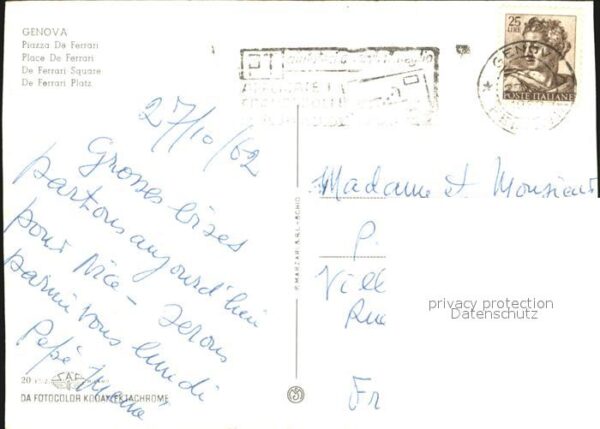 GENOVA
Piazza De Ferrari
Place De Ferrari
De Ferrari Square
De Ferrari Platz
27/10/62
Grosses bises
partons aujourd'hui
pour Nice - serons
parmi vous lundi
Pépé
20
SAF
DA FOTOCOLOR KODAK EKTACHROME
P. MARZARI S.R.L. - SCHIO
25
LIRE
POSTE ITALIANE
GENOVA
Madame et Monsieur
P.
Ville
Rue
Fr
privacy protection
Datenschutz